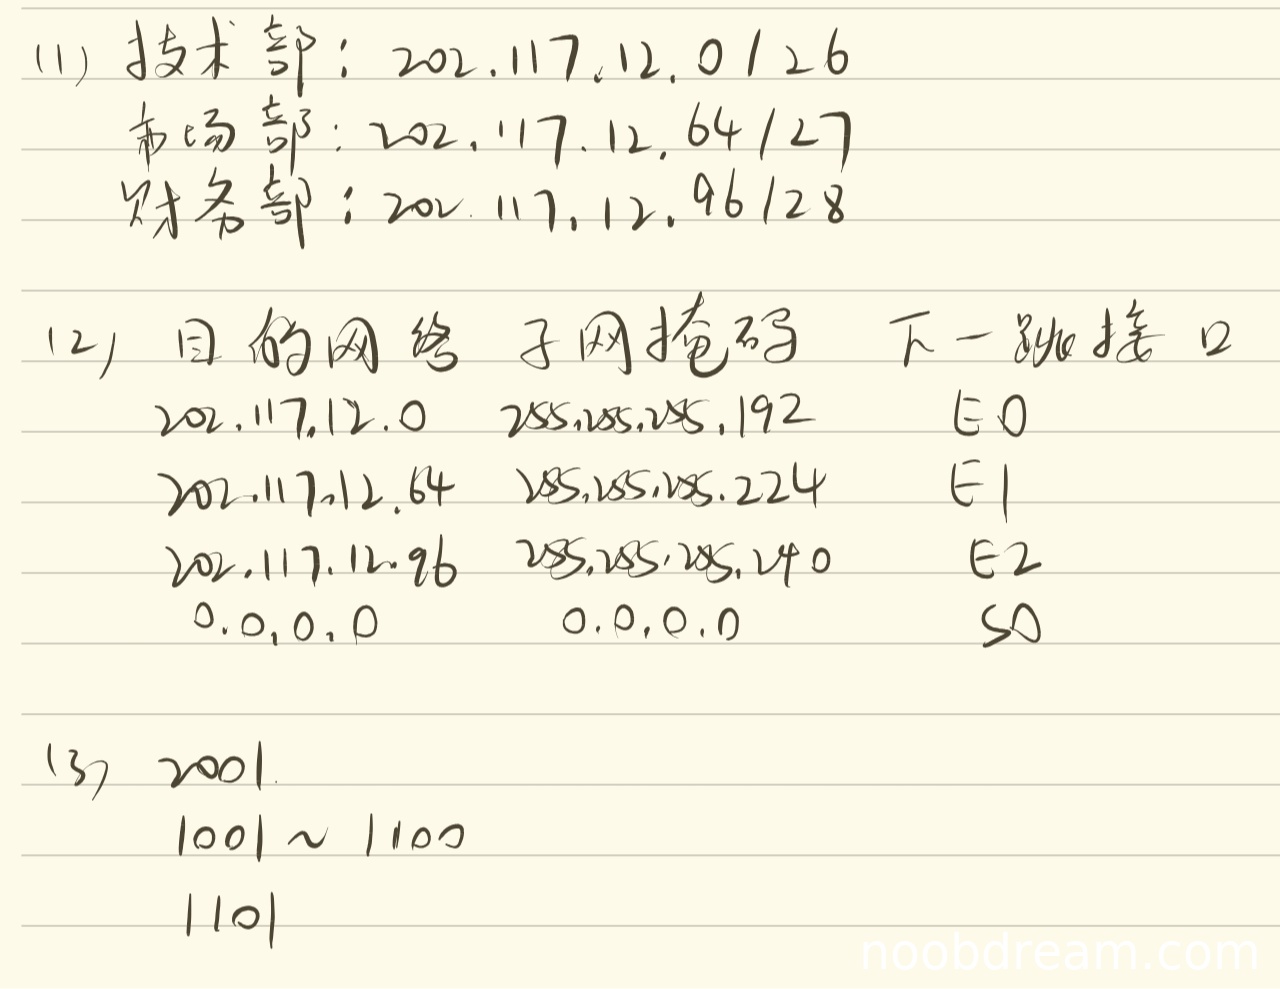 (1) 技术部: 202.117.12.0/26
市场部: 202.117.12.64/27
财务部: 202.117.12.96/28
(2) 目的网络 子网掩码 下一跳接口
202.117.12.0 255.255.255.192 E0
202.117.12.64 255.255.255.224 E1
202.117.12.96 255.255.255.240 E2
0.0.0.0 0.0.0.0 S0
(3) 2001.
1001~1100
1101
noobdream.com